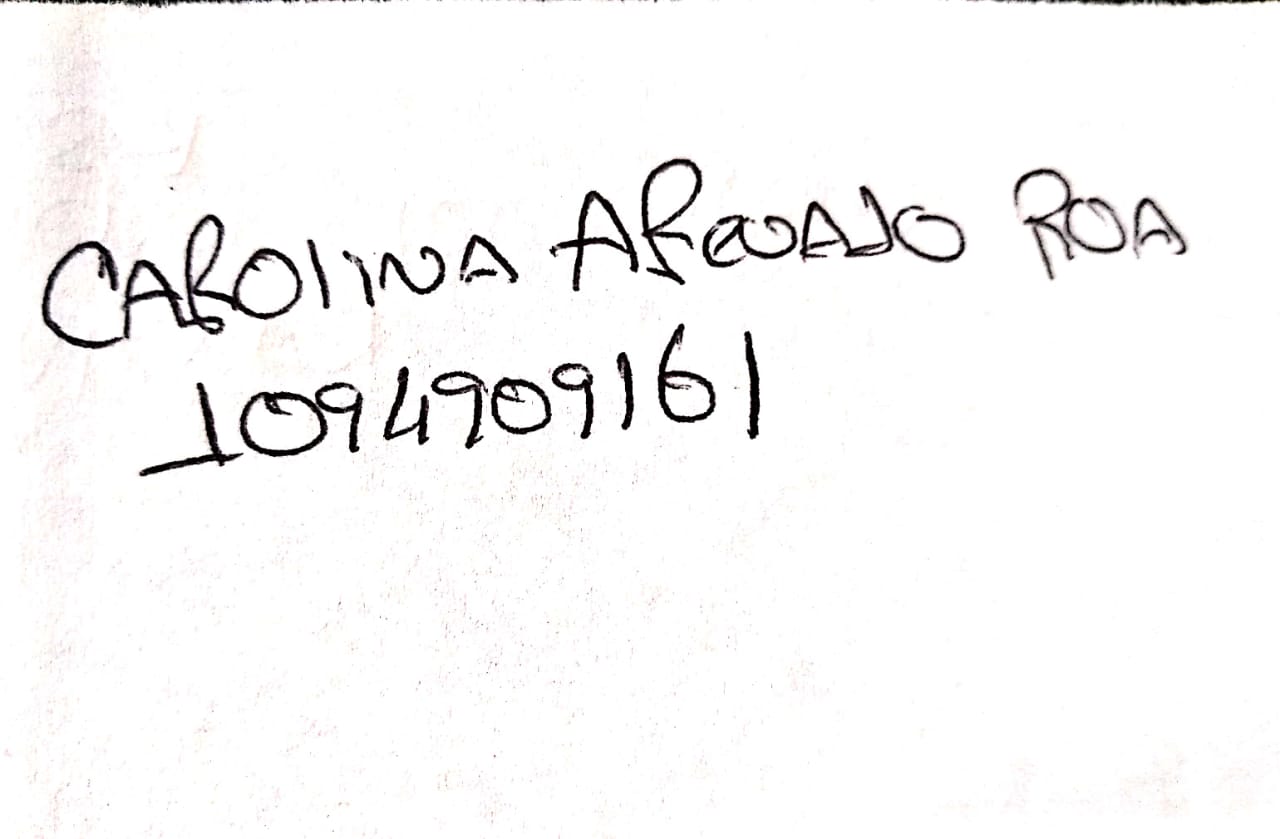 CAROLINA AREVALO ROA
1094909161